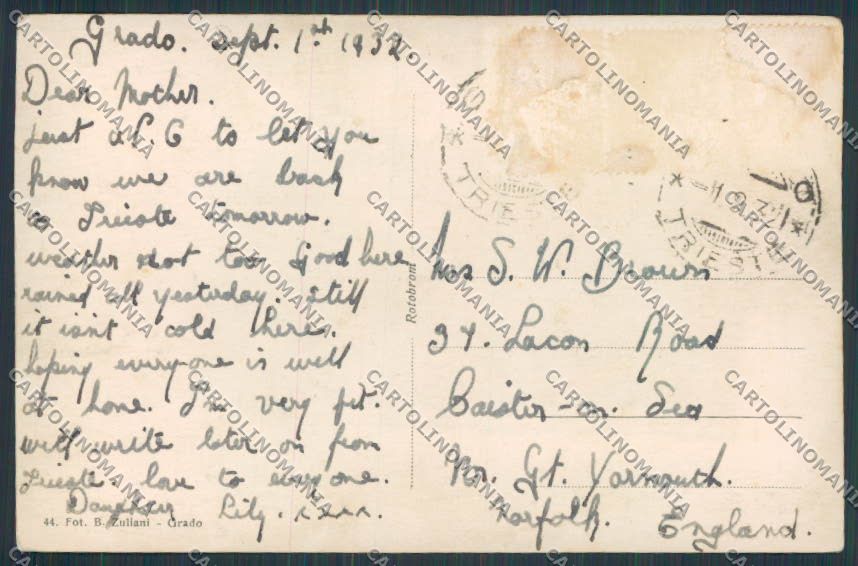 Grado. Sept. 1st 1932
Dear Mother.
just a P.C to let you
know we are back
to Trieste tomorrow.
weather not too Good here
rained all yesterday. Still
it isn't cold here.
hoping everyone is well
at home. I'm very fit.
will write later on from
Trieste love to everyone.
Daughter Lily. xxxx.
44. Fot. B. Zuliani - Grado
Rotobrom
TRIESTE
TRIESTE
Mrs S. W. Brown
37. Lacon Road
Caister-on-Sea
Nr. Gt. Yarmouth.
Norfolk. England.
CARTOLINOMANIA